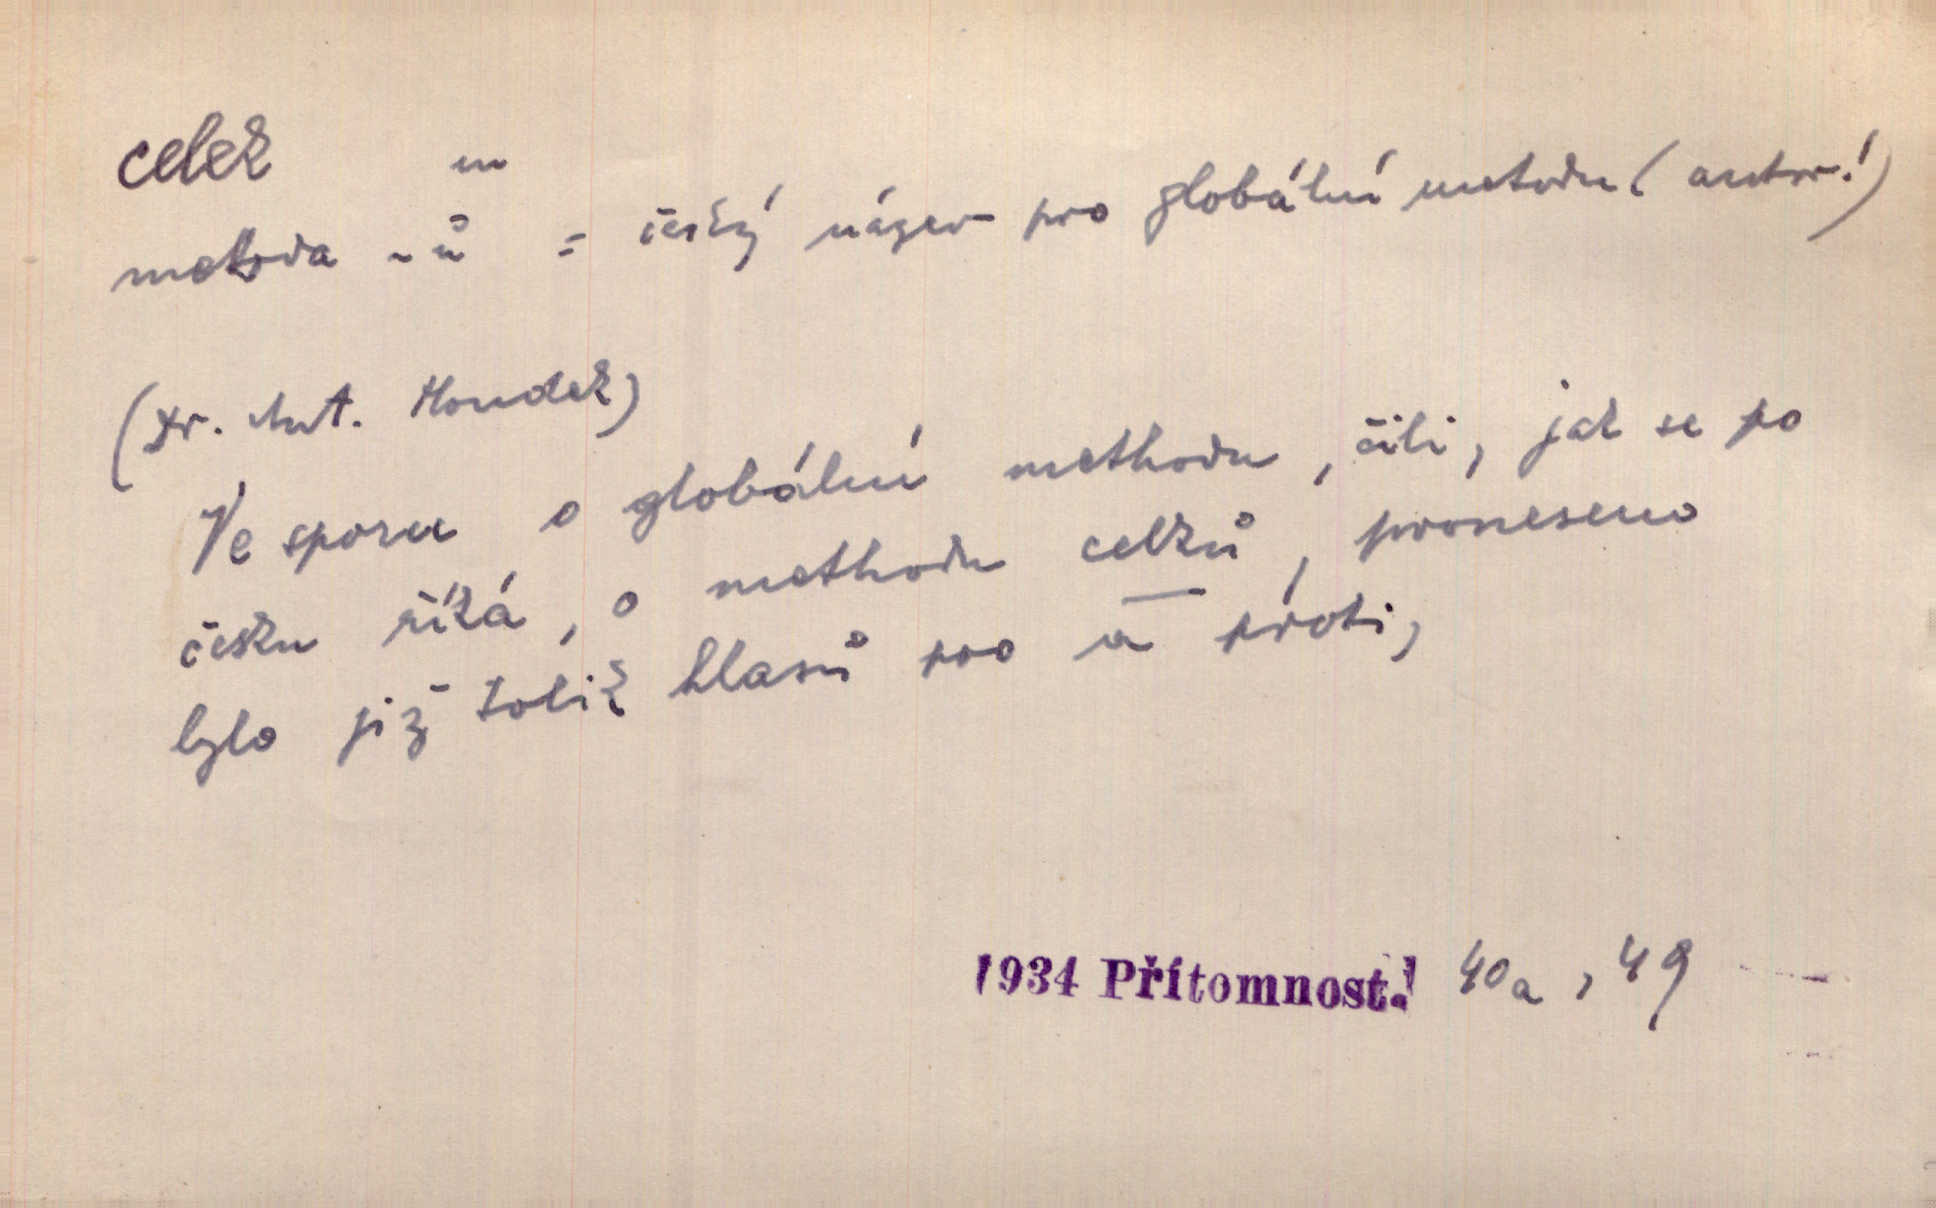 celek m
metoda -ů = český název pro globální metodu (autor!)
(Dr. Ant. Houdek)
Ve sporu o globální methodu, čili, jak se po
česku říká, o methodu celků, proneseno
bylo již tolik hlasů pro a proti,
1934 Přítomnost. 40a, 49